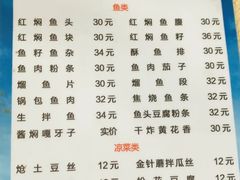 鱼类
红焖鱼头 30元 红焖鱼腹 30元
红焖鱼块 30元 红焖鱼籽 36元
鱼籽鱼杂 34元 酥鱼排 30元
鱼肉粉条 30元 鱼肉茄子 30元
熘鱼片 30元 熘鱼段 32元
锅包鱼肉 32元 焦烧鱼条 32元
生拌鱼 34元 鱼头豆腐粉条 32元
酱焖嘎牙子 实价 干炸黄花香 30元
凉菜类
炝土豆丝 12元 金针蘑拌瓜丝 12元
12元